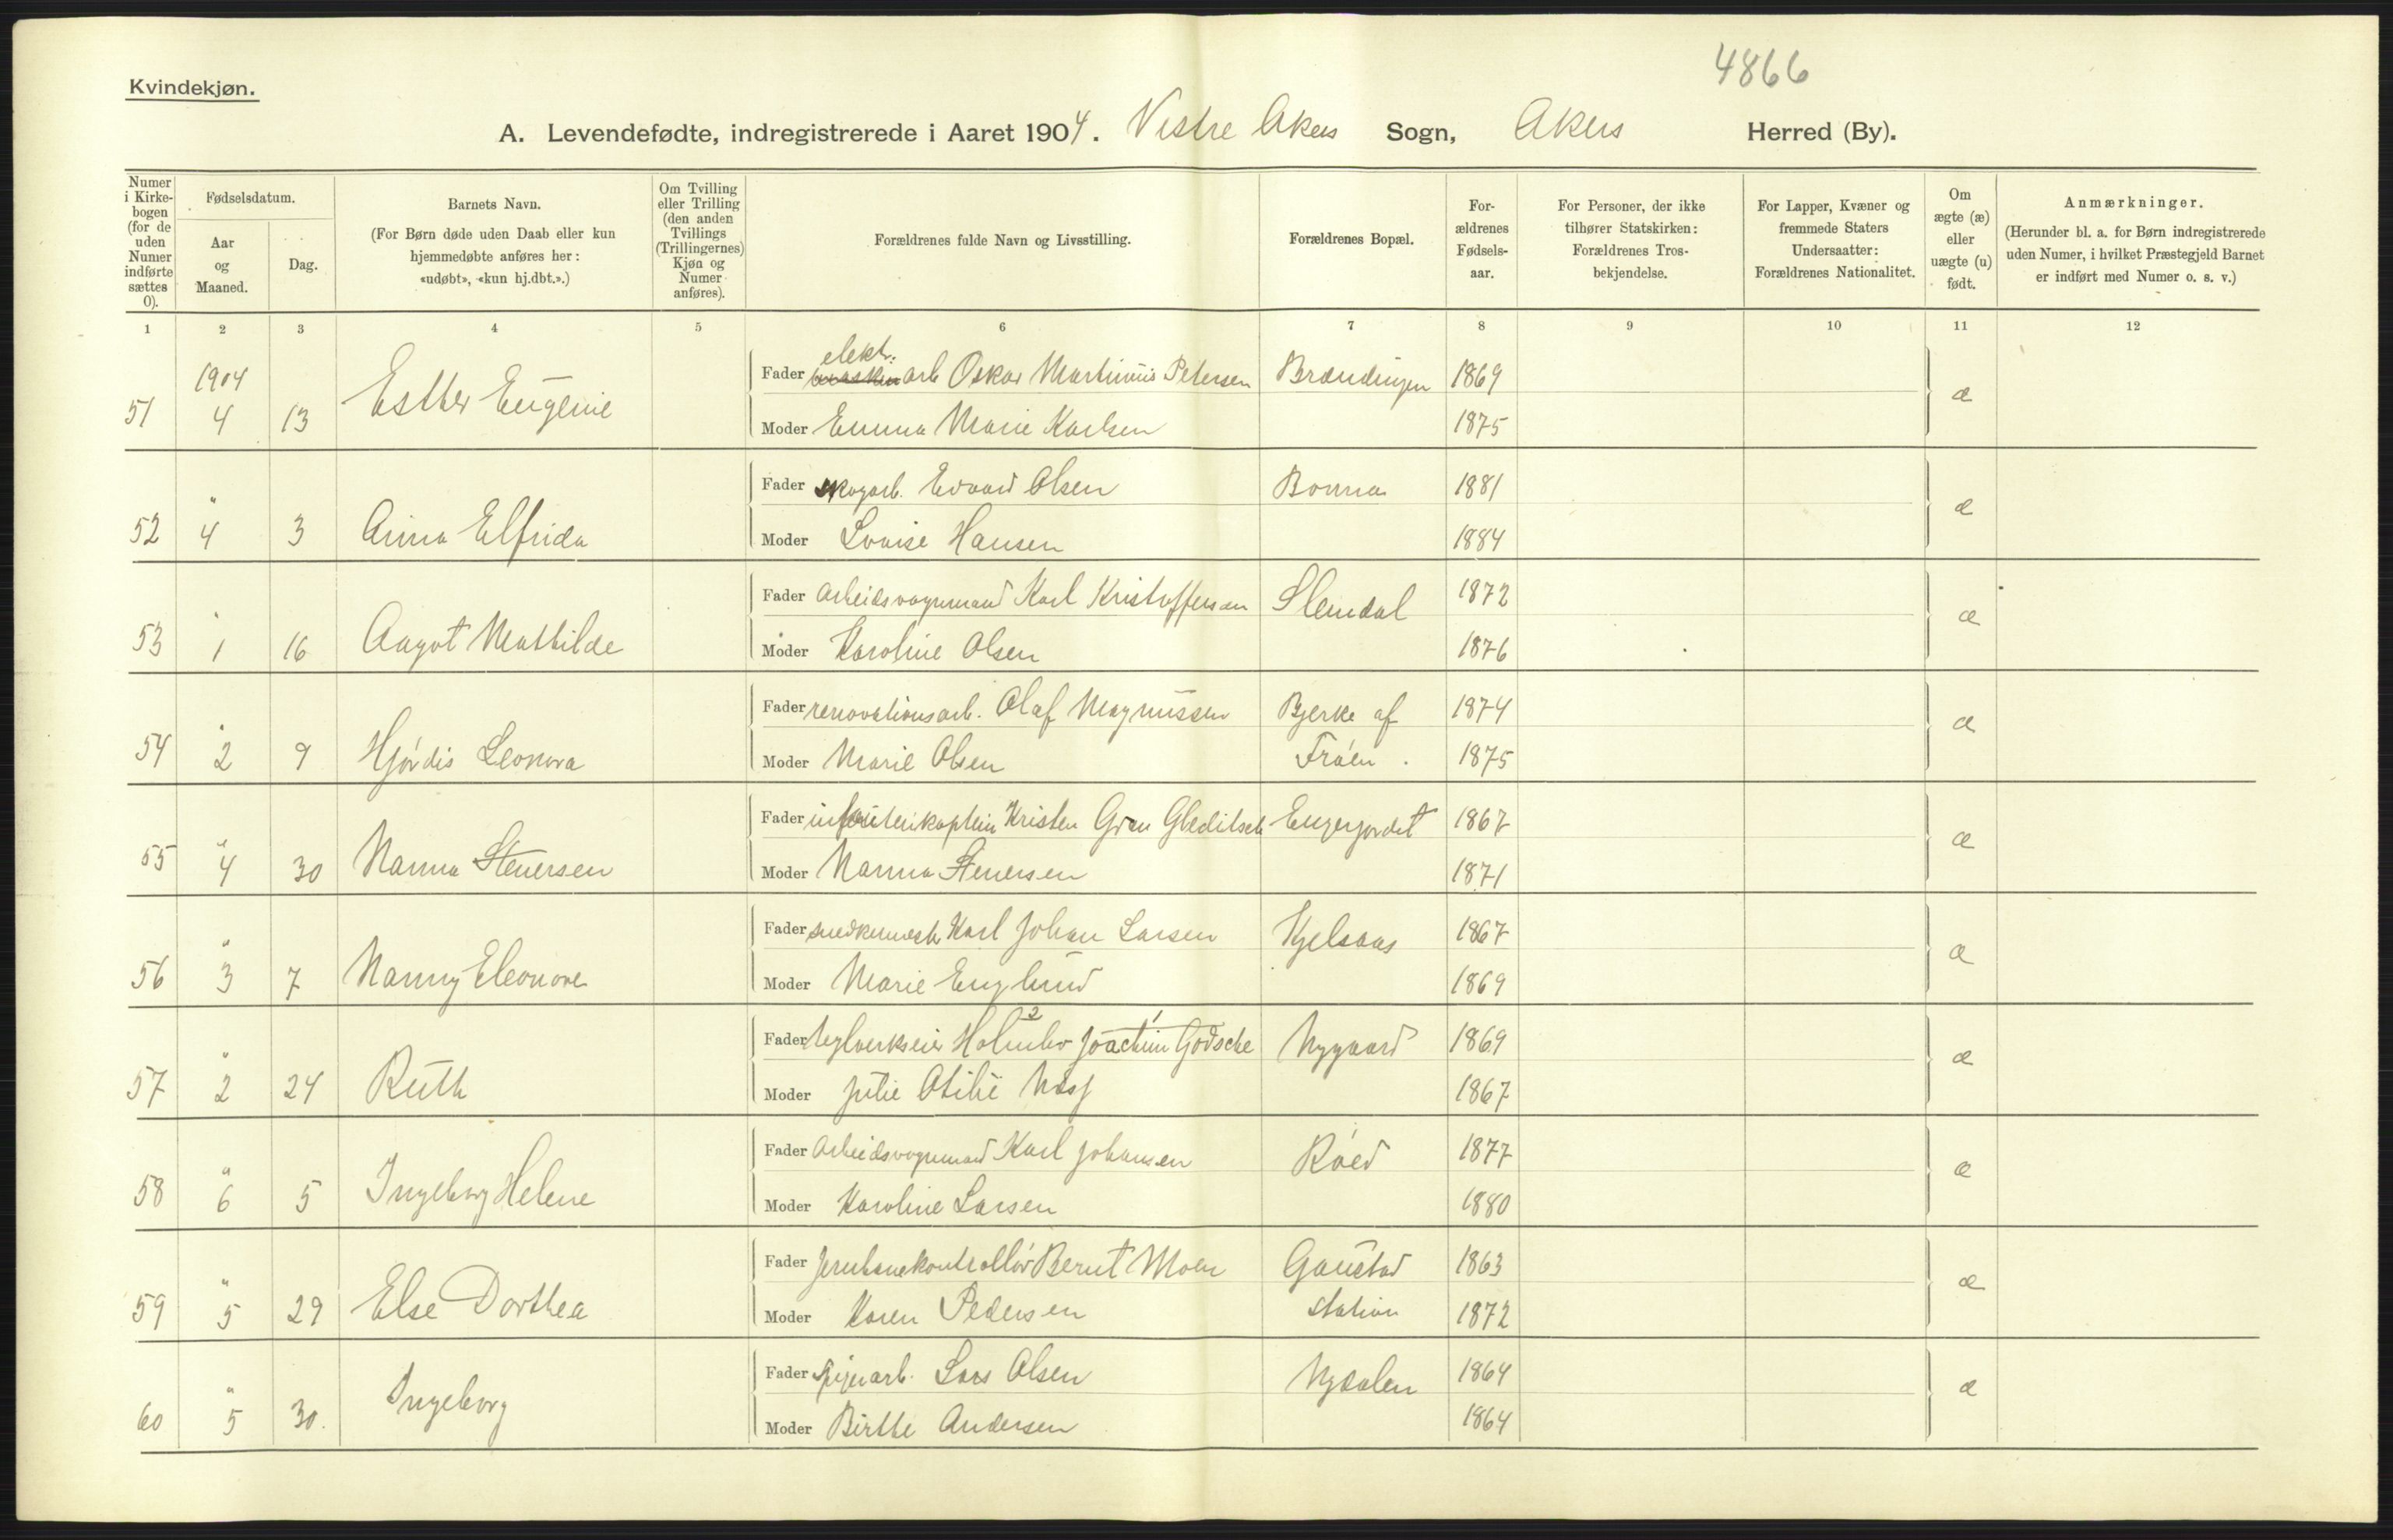 4866
Kvindekjøn.
A. Levendefødte, indregistrerede i Aaret 1904. Vestre Akers Sogn, Akers Herred (By).
Numer i Kirkebogen (for de uden Numer indførte sættes 0).
Fødselsdatum.
Aar og Maaned.
Dag.
Barnets Navn.
(For Børn døde uden Daab eller kun hjemmedøbte anføres her: «udøbt», «kun hj.dbt.».)
Om Tvilling eller Trilling (den anden Tvillings (Trillingernes) Kjøn og Numer anføres).
Forældrenes fulde Navn og Livsstilling.
Forældrenes Bopæl.
Forældrenes Fødselsaar.
For Personer, der ikke tilhører Statskirken: Forældrenes Trosbekjendelse.
For Lapper, Kvæner og fremmede Staters Undersaatter: Forældrenes Nationalitet.
Om ægte (æ) eller uægte (u) født.
Anmærkninger.
(Herunder bl. a. for Børn indregistrerede uden Numer, i hvilket Præstegjeld Barnet er indført med Numer o. s. v.)
1 2 3 4 5 6 7 8 9 10 11 12
51 1904 4 13 Esther Eugenie Fader elektr. arb Oskar Martinius Petersen Brændingen 1869 æ
Moder Emma Marie Karlsen 1875
52 " 4 3 Anna Elfrida Fader skogarb. Edvard Olsen Bonna 1881 æ
Moder Lovise Hansen 1884
53 " 1 16 Aagot Mathilde Fader Arbeidsvognmand Karl Kristoffersen Slemdal 1872 æ
Moder Karoline Olsen 1876
54 " 2 9 Hjördis Leonora Fader renovationsarb. Olaf Magnussen Bjerke af 1874 æ
Moder Marie Olsen Fröen. 1875
55 " 4 30 Nanna Stenersen Fader infanterikaptein Kristen Gran Gleditsch Engerjordet 1867 æ
Moder Nanna Stenersen 1871
56 " 3 7 Nanny Eleonore Fader snedkermester Karl Johan Larsen Kjelsaas 1867 æ
Moder Marie Englund 1869
57 " 2 24 Ruth Fader teglverkseier Holmbo Joachim Godsche Nygaard 1869 æ
Moder Julie Otilie 1867
58 " 6 5 Ingeborg Helene Fader Arbeidsvognmand Karl Johansen Röed 1877 æ
Moder Karoline Larsen 1880
59 " 5 29 Else Dorthea Fader Jernbanekontrollör Bernt Moen Gaustad 1863 æ
Moder Karen Pedersen station 1872
60 " 5 30. Ingeborg Fader spigerarb. Lars Olsen Nydalen 1864 æ
Moder Birthe Andersen 1864